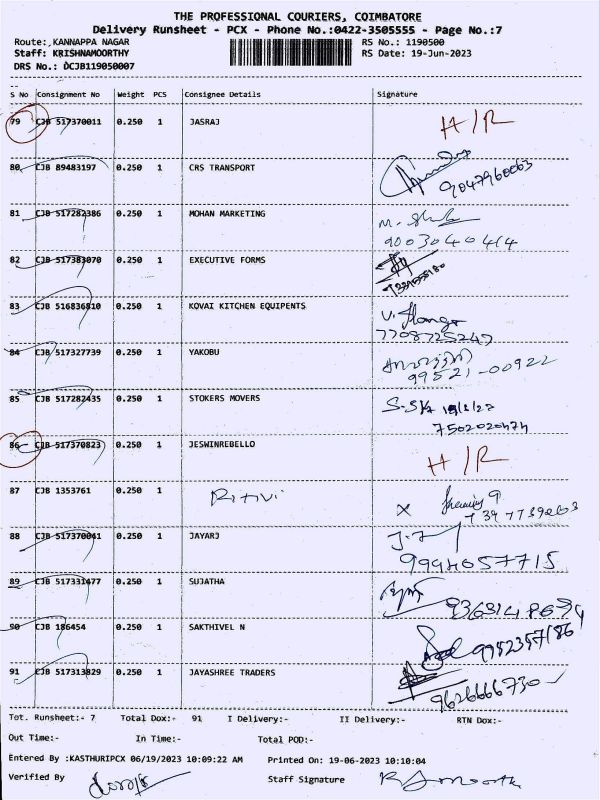 THE PROFESSIONAL COURIERS, COIMBATORE
Delivery Runsheet - PCX - Phone No.:0422-3505555 - Page No.:7
Route:,KANNAPPA NAGAR RS No.: 1190500
Staff: KRISHNAMOORTHY RS Date: 19-Jun-2023
DRS No.: DCJB119050007
S No Consignment No Weight PCS Consignee Details Signature
79 CJB 517370011 0.250 1 JASRAJ H/R
80 CJB 89483197 0.250 1 CRS TRANSPORT
9047960063
81 CJB 517282386 0.250 1 MOHAN MARKETING
9003040414
82 CJB 517383070 0.250 1 EXECUTIVE FORMS
83 CJB 516836810 0.250 1 KOVAI KITCHEN EQUIPENTS
7708725247
84 CJB 517327739 0.250 1 YAKOBU
99521-00922
85 CJB 517282435 0.250 1 STOKERS MOVERS
86 CJB 517370823 0.250 1 JESWINREBELLO H/R
87 CJB 1353761 0.250 1
88 CJB 517370041 0.250 1 JAYARJ
9994057715
89 CJB 517331477 0.250 1 SUJATHA
90 CJB 186454 0.250 1 SAKTHIVEL N
9952357186
91 CJB 517313829 0.250 1 JAYASHREE TRADERS
9626666730
Tot. Runsheet:- 7 Total Dox:- 91 I Delivery:- II Delivery:- RTN Dox:-
Out Time:- In Time:- Total POD:-
Entered By :KASTHURIPCX 06/19/2023 10:09:22 AM Printed On: 19-06-2023 10:10:04
Verified By Staff Signature